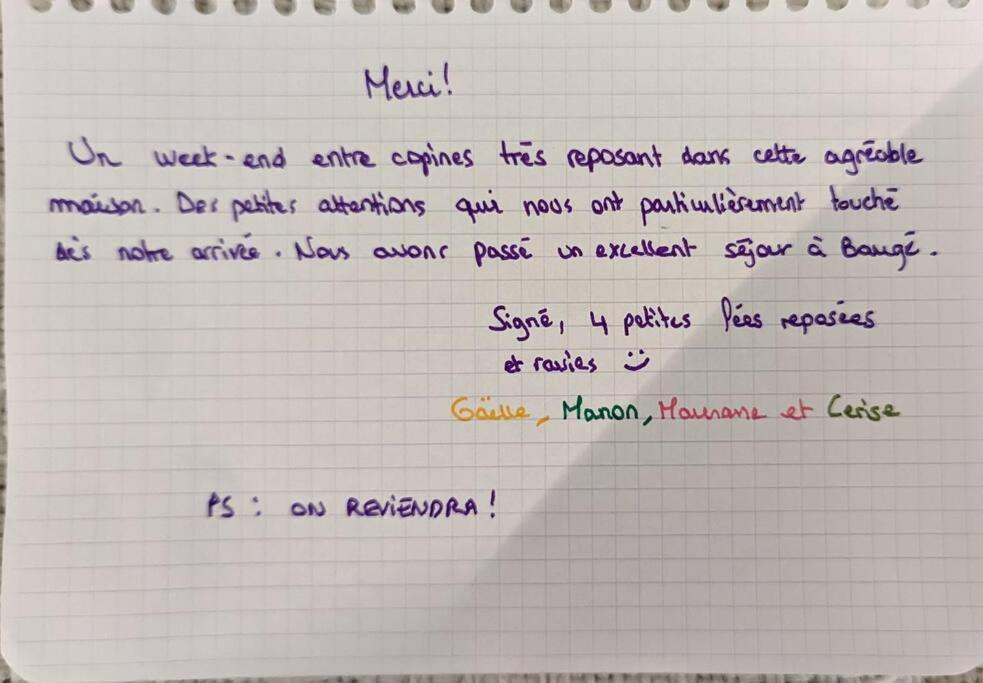 Merci!
Un week-end entre copines très reposant dans cette agréable
maison. Des petites attentions qui nous ont particulièrement touché
dès notre arrivée. Nous avons passé un excellent séjour à Baugé.
Signé, 4 petites fées reposées
et ravies :)
Gaëlle, Manon, Maurane et Cerise
PS : ON REVIENDRA !